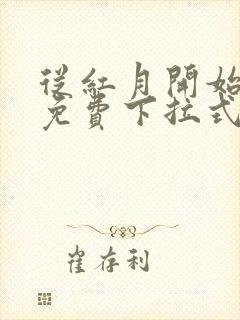 從紅月開始
免費下拉式
崔存利